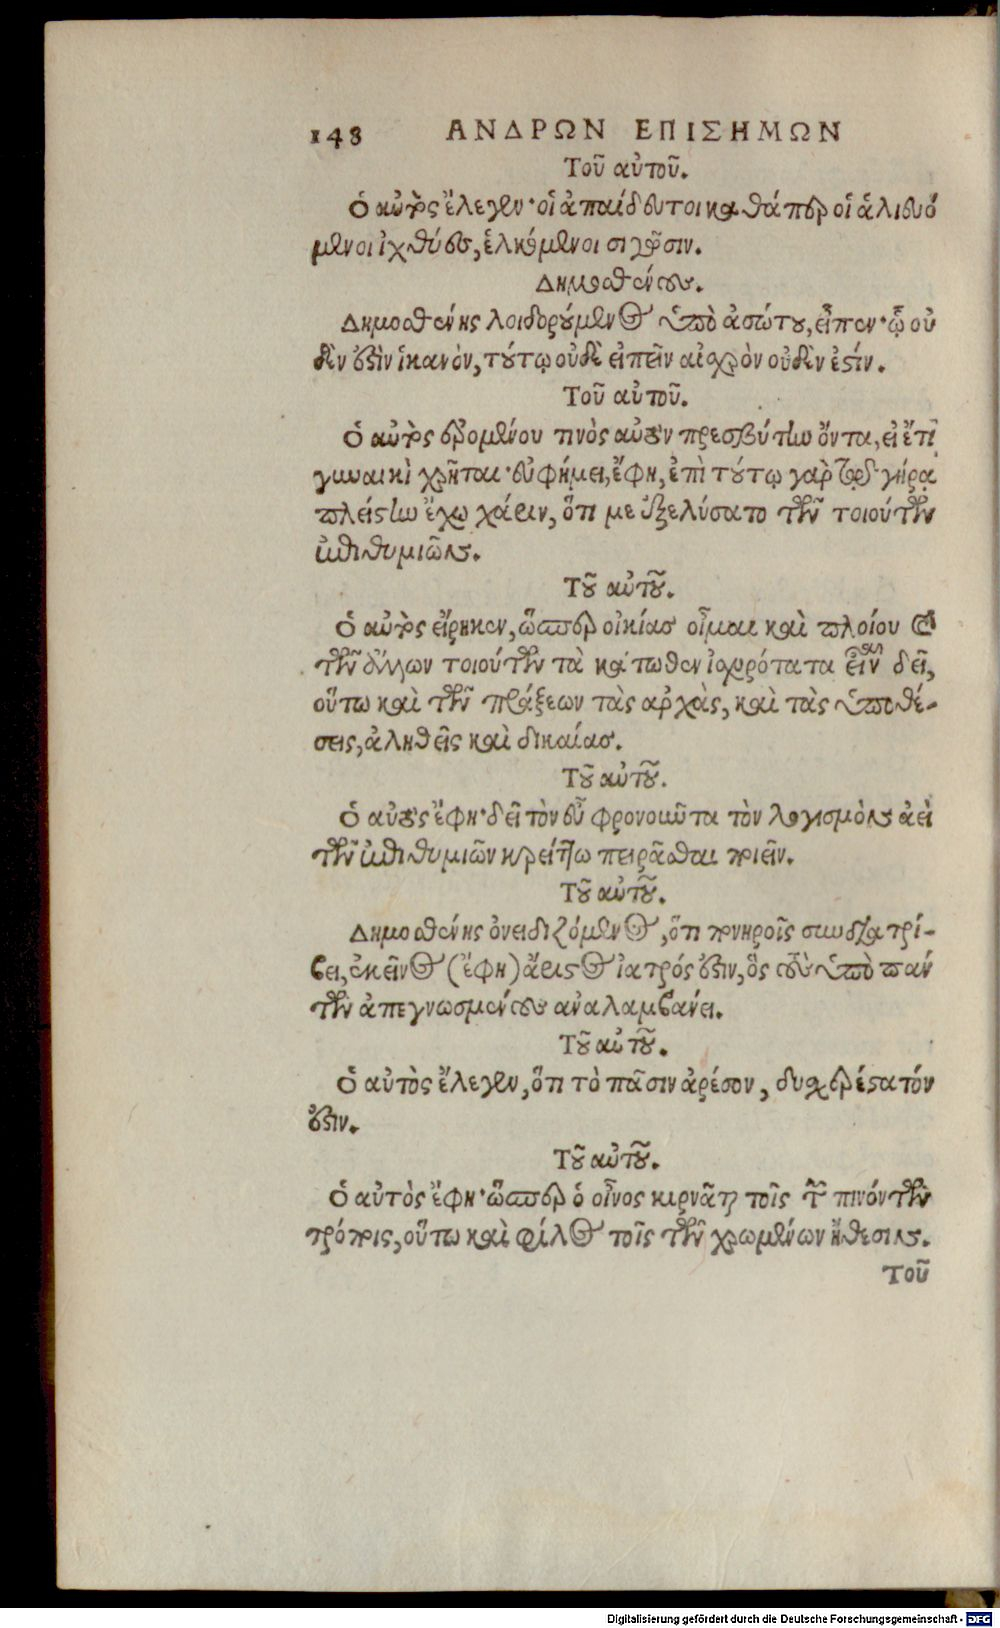 148 ΑΝΔΡΩΝ ΕΠΙΣΗΜΩΝ
Τοῦ αὐτοῦ.
Ὁ αὐτὸς ἔλεγεν· οἱ ἀπαίδευτοι καθάπερ οἱ ἁλιευό
μενοι ἰχθύες, ἑλκόμενοι σιγῶσιν.
Δημοσθένους.
Δημοσθένης λοιδορούμενος ὑπὸ ἀσώτου, εἶπεν· ᾧ οὐ
δὲν ἐστὶν ἱκανὸν, τούτῳ οὐδὲ εἰπεῖν αἰσχρὸν οὐδὲν ἐστίν.
Τοῦ αὐτοῦ.
Ὁ αὐτὸς ἐρομένου τινὸς αὐτὸν πρεσβύτην ὄντα, εἰ ἔτι
γυναικὶ χρῆται· εὐφήμει, ἔφη, ἐπὶ τούτῳ γὰρ τῷδε γήρᾳ
πλείστην ἔχω χάριν, ὅτι με ἐξελύσατο τῶν τοιούτων
ἐπιθυμιῶν.
Τοῦ αὐτοῦ.
Ὁ αὐτὸς εἴρηκεν, ὥσπερ οἰκίας οἶμαι καὶ πλοίου καὶ
τῶν ἄλλων τοιούτων τὰ κάτωθεν ἰσχυρότατα εἶναι δεῖ,
οὕτω καὶ τῶν πράξεων τὰς ἀρχὰς, καὶ τὰς ὑποθέ-
σεις, ἀληθεῖς καὶ δικαίας.
Τοῦ αὐτοῦ.
Ὁ αὐτὸς ἔφη· δεῖ τὸν εὖ φρονοῦντα τὸν λογισμὸν ἀεὶ
τῶν ἐπιθυμιῶν κρείττω πειρᾶσθαι ποιεῖν.
Τοῦ αὐτοῦ.
Δημοσθένης ὀνειδιζόμενος, ὅτι πονηροῖς συνδιατρί-
βει, ἐκεῖνος (ἔφη) ἄριστος ἰατρός ἐστιν, ὃς τοὺς ὑπὸ πάν
των ἀπεγνωσμένους ἀναλαμβάνει.
Τοῦ αὐτοῦ.
Ὁ αὐτὸς ἔλεγεν, ὅτι τὸ πᾶσιν ἀρέσον, δυσχερέστατόν
ἐστιν.
Τοῦ αὐτοῦ.
Ὁ αὐτὸς ἔφη· ὥσπερ ὁ οἶνος κιρνᾶται τοῖς τῶν πινόντων
τρόποις, οὕτω καὶ φίλος τοῖς τῶν χρωμένων ἤθεσιν.
Τοῦ
Digitalisierung gefördert durch die Deutsche Forschungsgemeinschaft - DFG